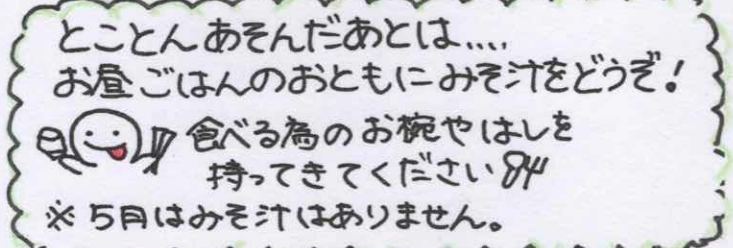 とことんあそんだあとは....
お昼ごはんのおともにみそ汁をどうぞ!
食べる為のお椀やはしを
持ってきてください
※5月はみそ汁はありません。